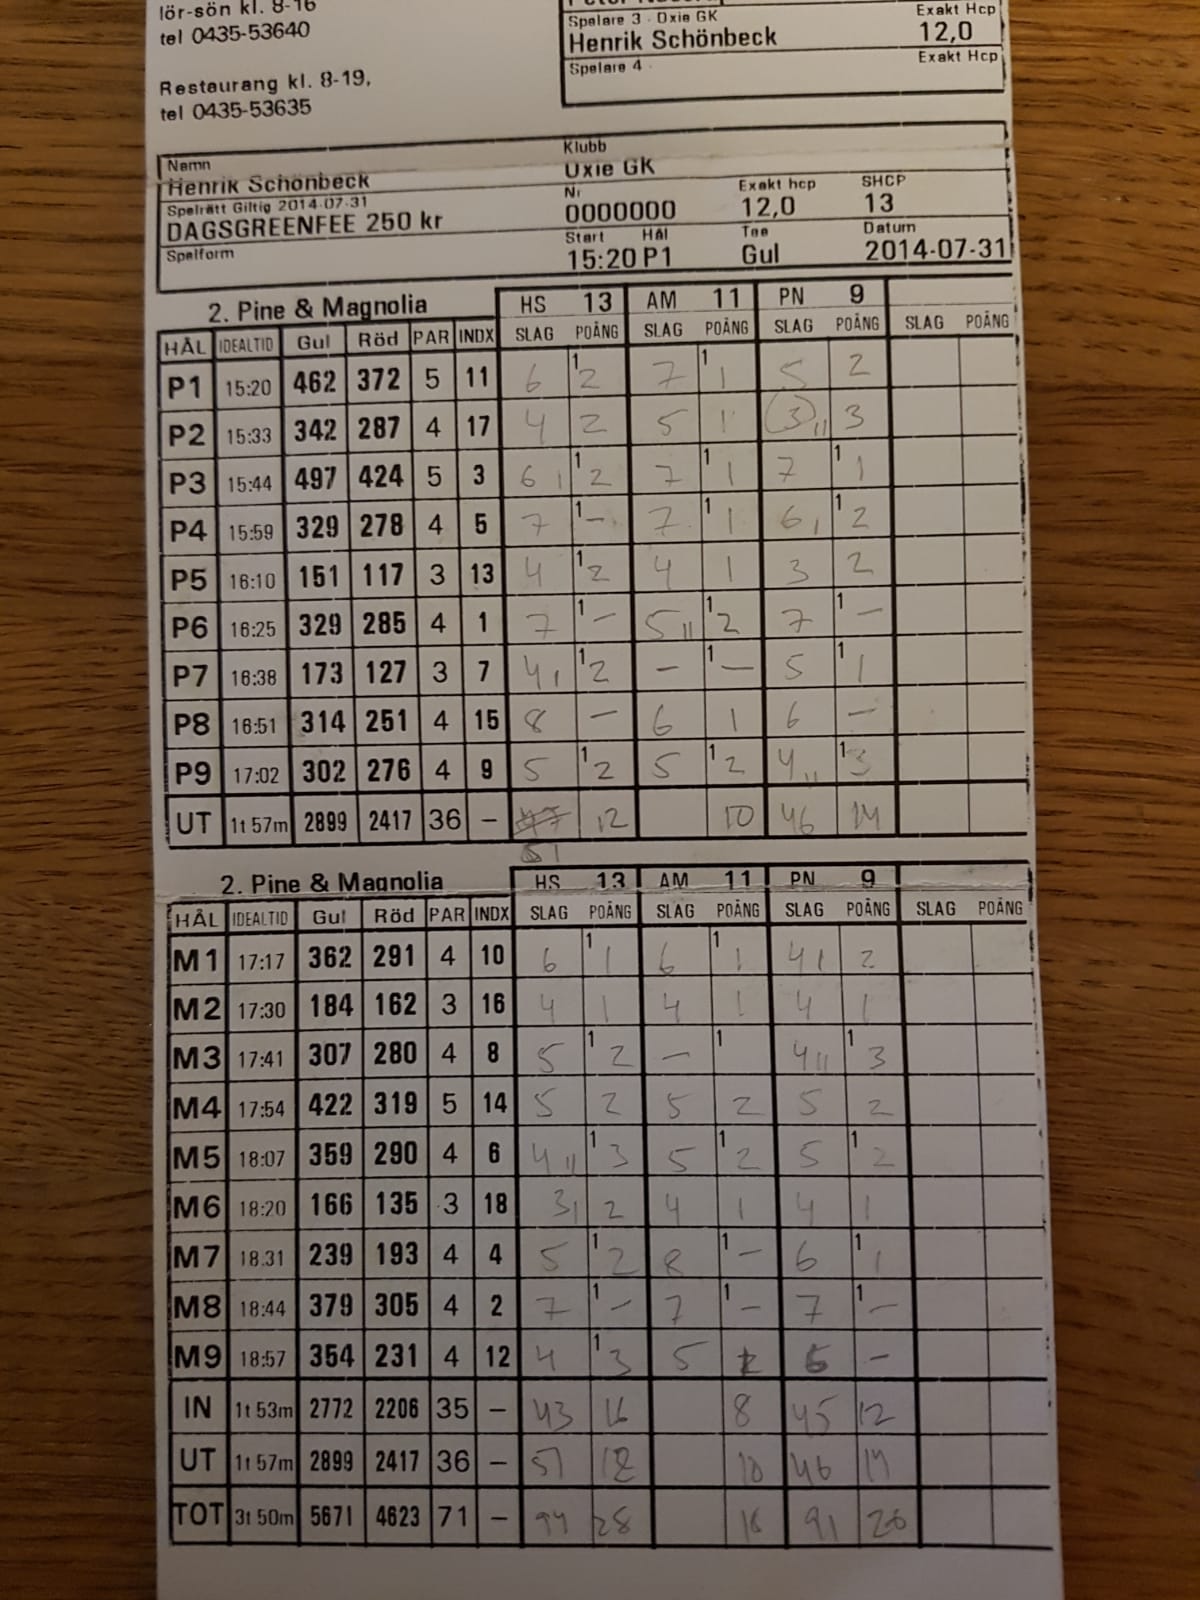 lör-sön kl. 8-16
tel 0435-53640
Restaurang kl. 8-19,
tel 0435-53635
Spelare 3 · Oxie GK Exakt Hcp
Henrik Schönbeck 12,0
Spelare 4 Exakt Hcp
Namn Klubb
Henrik Schönbeck Oxie GK
Spelrätt Giltig 2014-07-31 Nr Exakt hcp SHCP
DAGSGREENFEE 250 kr 0000000 12,0 13
Spelform Start Hål Tee Datum
15:20 P1 Gul 2014-07-31
2. Pine & Magnolia HS 13 AM 11 PN 9
HÅL IDEALTID Gul Röd PAR INDX SLAG POÄNG SLAG POÄNG SLAG POÄNG SLAG POÄNG
P1 15:20 462 372 5 11 6 1 2 7 1 1 5 2
P2 15:33 342 287 4 17 4 2 5 1 (3) 11 3
P3 15:44 497 424 5 3 6 1 1 2 7 1 1 7 1 1
P4 15:59 329 278 4 5 7 1 - 7 1 1 6 1 1 2
P5 16:10 151 117 3 13 4 1 2 4 1 3 2
P6 16:25 329 285 4 1 7 1 - 5 11 1 2 7 1 -
P7 16:38 173 127 3 7 4 1 1 2 - 1 - 5 1 1
P8 16:51 314 251 4 15 8 - 6 1 6 -
P9 17:02 302 276 4 9 5 1 2 5 1 2 4 11 1 3
UT 1t 57m 2899 2417 36 - 12 10 46 14
51
2. Pine & Magnolia HS 13 AM 11 PN 9
HÅL IDEALTID Gul Röd PAR INDX SLAG POÄNG SLAG POÄNG SLAG POÄNG SLAG POÄNG
M1 17:17 362 291 4 10 6 1 1 6 1 1 4 1 2
M2 17:30 184 162 3 16 4 1 4 1 4 1
M3 17:41 307 280 4 8 5 1 2 - 1 4 11 1 3
M4 17:54 422 319 5 14 5 2 5 2 5 2
M5 18:07 359 290 4 6 4 11 1 3 5 1 2 5 1 2
M6 18:20 166 135 3 18 3 1 2 4 1 4 1
M7 18.31 239 193 4 4 5 1 2 8 1 - 6 1 1
M8 18:44 379 305 4 2 7 1 - 7 1 - 7 1 -
M9 18:57 354 231 4 12 4 1 3 5 6 -
IN 1t 53m 2772 2206 35 - 43 16 8 45 12
UT 1t 57m 2899 2417 36 - 51 12 10 46 14
TOT 3t 50m 5671 4623 71 - 94 28 18 91 26